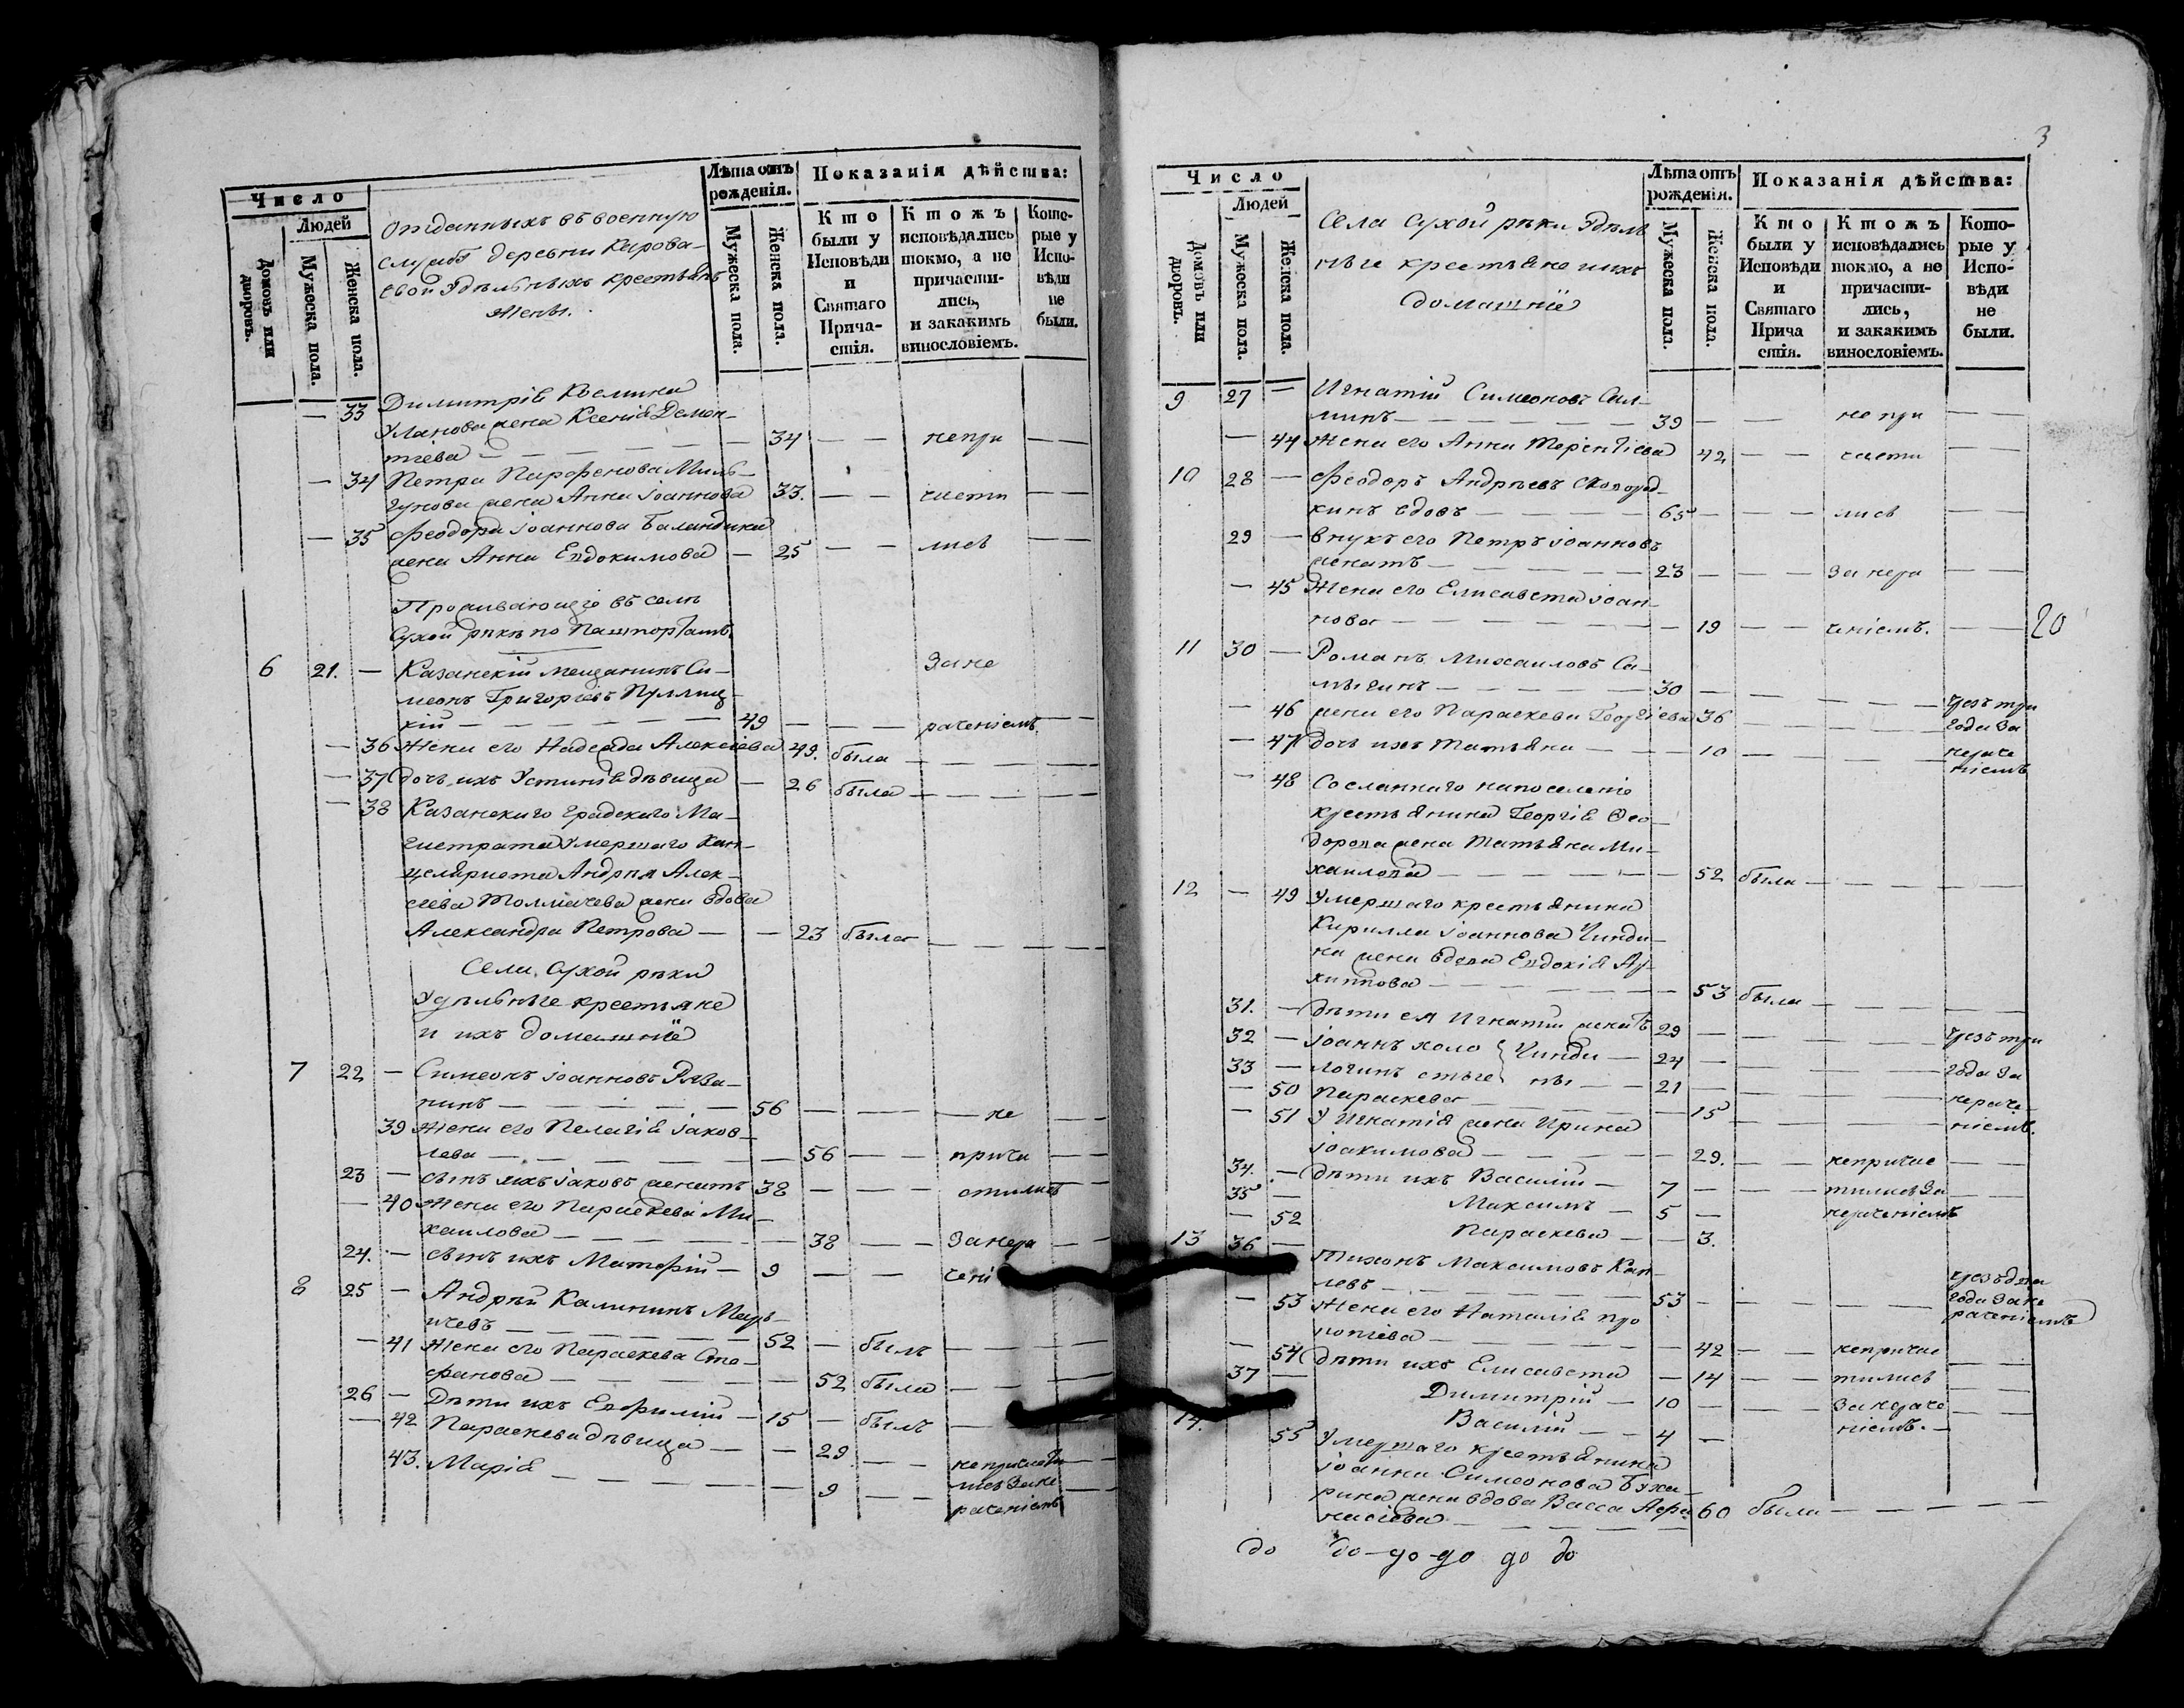 Число
Людей
Домовъ или дворовъ.
Мужеска пола.
Женска пола.
Отданныхъ въ военную
службу деревни Кирова-
свой Удѣльныхъ крестьянъ
жены.
Лѣта отъ рожденія.
Мужеска пола.
Женска пола.
Показанія дѣйства:
Кто были у Исповѣди и Святаго Причастія.
Ктожъ исповѣдались токмо, а не причастились, и закакимъ винословіемъ.
Которые у Исповѣди не были.
— 33 Димитрія Космина
Уланова жена Ксенія Демен-
тіева — — 34 — — непри — —
— 34 Петра Парфенова Миль-
гунова жена Анна Іоаннова 33. — — части — —
— 35 Феодора Іоаннова Баландина
жена Анна Евдокимова — 25 — — лись — —
Проживающіе въ селѣ
Сухой рѣкѣ по Пашпортамъ.
6 21. — Казанскій мещанинъ Си- Зане
меонъ Григорьевъ
кій — 49 — — раченіемъ — —
— 36 Жена его Надежда Алексіева 49. была — — —
— 37 дочь ихъ Устинія дѣвица — 26 была — — —
— 38 Казанскаго Градскаго Ма-
гистрата Умершаго Кан-
целяриста Андрея Алек-
сіева Толмачева жена вдова
Александра Петрова — — 23 была — — —
Села Сухой рѣки
Удѣльные крестьяне
и ихъ домашніе
7 22 — Симеонъ Іоанновъ Ряза-
нинъ — 56 — — — не — —
39 Жена его Пелагія Іаков-
лева — — 56 — — прича — —
23 — сынъ ихъ Іаковъ женатъ 38 — — — стились
— 40 Жена его Параскева Ми-
хаилова — — 38 — — Занера — —
24. — сынъ ихъ Матфій — 9 — — чені
8 25 — Андрей Калининъ Марь-
ичевъ — 52 — былъ — — —
— 41 Жена его Параскева Сте-
фанова — — 52 была — — —
26 — Дѣти ихъ Евфимій — 15 — былъ —
— 42 Параскева дѣвица — — 29 — — непричасти
43. Марія — — 9 — — лись Зане
раченіемъ
3
Число
Людей
Домовъ или дворовъ.
Мужеска пола.
Женска пола.
Села Сухой рѣки Удѣль
ные крестьяне ихъ
домашніе
Лѣта отъ рожденія.
Мужеска пола.
Женска пола.
Показанія дѣйства:
Кто были у Исповѣди и Святаго Прича стія.
Ктожъ исповѣдались токмо, а не причастились, и закакимъ винословіемъ.
Которые у Исповѣди не были.
9 27 — Игнатій Симеоновъ Сал-
минъ — 39 — — не при — —
— 44 Жена его Анна Терентіева 42 — — части
10 28 — Феодоръ Андреевъ Сковород-
кинъ вдовъ — 65 — — — лись — —
29 — внукъ его Петръ Іоанновъ
женатъ — 23 — — — Занера — —
— 45 Жена его Елисавета Іоан-
нова — — 19 — — ченіемъ. — — 20
11 30 — Романъ Михаиловъ Са-
мыгинъ — 30 — — — — чрезъ три
— 46 жена его Параскева Георгіева 36 года За
— 47 дочь ихъ Татьяна — — 10 — — — нераче
ніемъ
— 48 Сосланнаго напоселеніе
крестьянина Георгія Фео-
дорова жена Татьяна Ми-
хаилова — — 52 была — — —
12 — 49 Умершаго крестьянина
Кирилла Іоаннова Чинди-
на жена вдова Евдокія Ар-
хиппова — — 53 была — — —
31. — Дѣти ея Игнатій женатъ 29 — — — чрезъ три
32 — Іоаннъ холо Чинди — 24 — — — года За
33 — Логинъ стые ны — 21 — — — нераче-
— 50 Параскева — — 15 — — ніемъ.
— 51 У Игнатія жена Ирина
Іоакимова — — 29. — — непричас — —
34. — Дѣти ихъ Василій — 7 — — — тились За — —
35 — Максимъ — 5 — нераченіемъ
— 52 Параскева — — 3.
13 36 — Тихонъ Максимовъ Кап-
левъ — 53 — — — чрезъ два
— 53 Жена его Наталія Про года Зане
копіева — — 42 — — непричас раченіемъ
— 54 Дѣти ихъ Елисавета — 14 — — тились — —
37 — Димитрій — 10 — — — Занераче — —
Василій — — 4 — ніемъ. —
14. 55 Умершаго крестьянина
Іоанна Симеонова Буха-
рина жена вдова Васса Афа-
насіева — 60 была — — —
до до-до-до до до